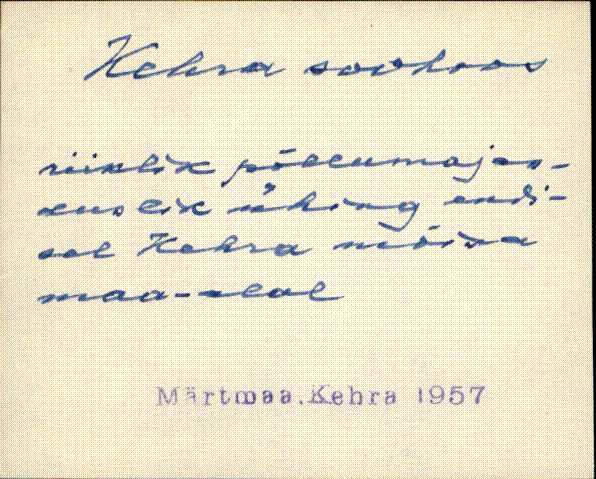 Kehra sovhoos
riiklik põllumajan-
duslik ühing endi-
sel Kehra mõisa
maa-alal
Märtmaa.Kehra 1957